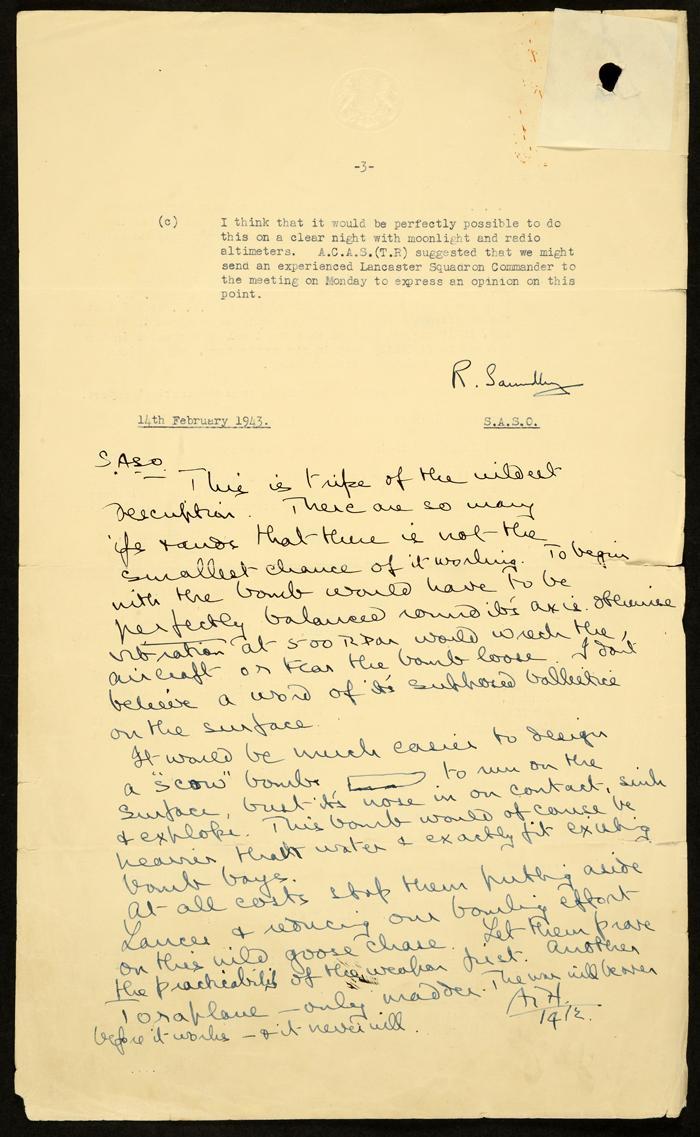 -3-
(c) I think that it would be perfectly possible to do
this on a clear night with moonlight and radio
altimeters. A.C.A.S.(T.R) suggested that we might
send an experienced Lancaster Squadron Commander to
the meeting on Monday to express an opinion on this
point.
R. Saundby
14th February 1943. S.A.S.O.
S.A.S.O.
This is tripe of the wildest
description. There are so many
ifs & ands that there is not the
smallest chance of it working. To begin
with the bomb would have to be
perfectly balanced round it's axis otherwise
vibration at 500 RPM would wreck the
aircraft or tear the bomb loose. I don't
believe a word of it's supposed ballistics
on the surface.
It would be much easier to design
a "scow" bomb to run on the
surface, bust it's nose in on contact, sink
& explode. This bomb would of course be
heavier than water & exactly fit existing
bomb bays.
At all costs stop them putting aside
Lancs & reducing our bombing effort
on this wild goose chase. Let them prove
the practicability of the weapon first. Another
Toraplane — only madder. The war will be over
before it works — & it never will.
A.H.
14/2.